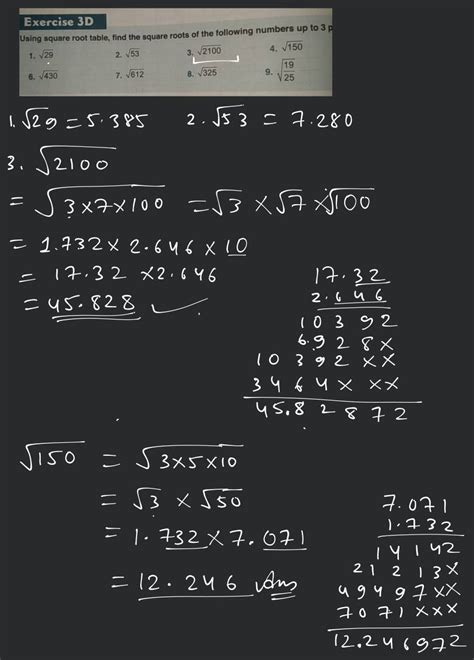 Exercise 3D
Using square root table, find the square roots of the following numbers up to 3 p
1. √29 2. √53 3. √2100 4. √150
6. √430 7. √612 8. √325 9. √19/25
1. √29 = 5.385 2. √53 = 7.280
3. √2100
= √3×7×100 = √3 × √7 × √100
= 1.732 × 2.646 × 10
= 17.32 × 2.646
= 45.828 ✓
17.32
2.646
10392
6928×
10392××
3464×××
45.82872
√150 = √3×5×10
= √3 × √50
= 1.732 × 7.071
= 12.246 Ans
7.071
1.732
14142
21213×
49497××
7071×××
12.246972